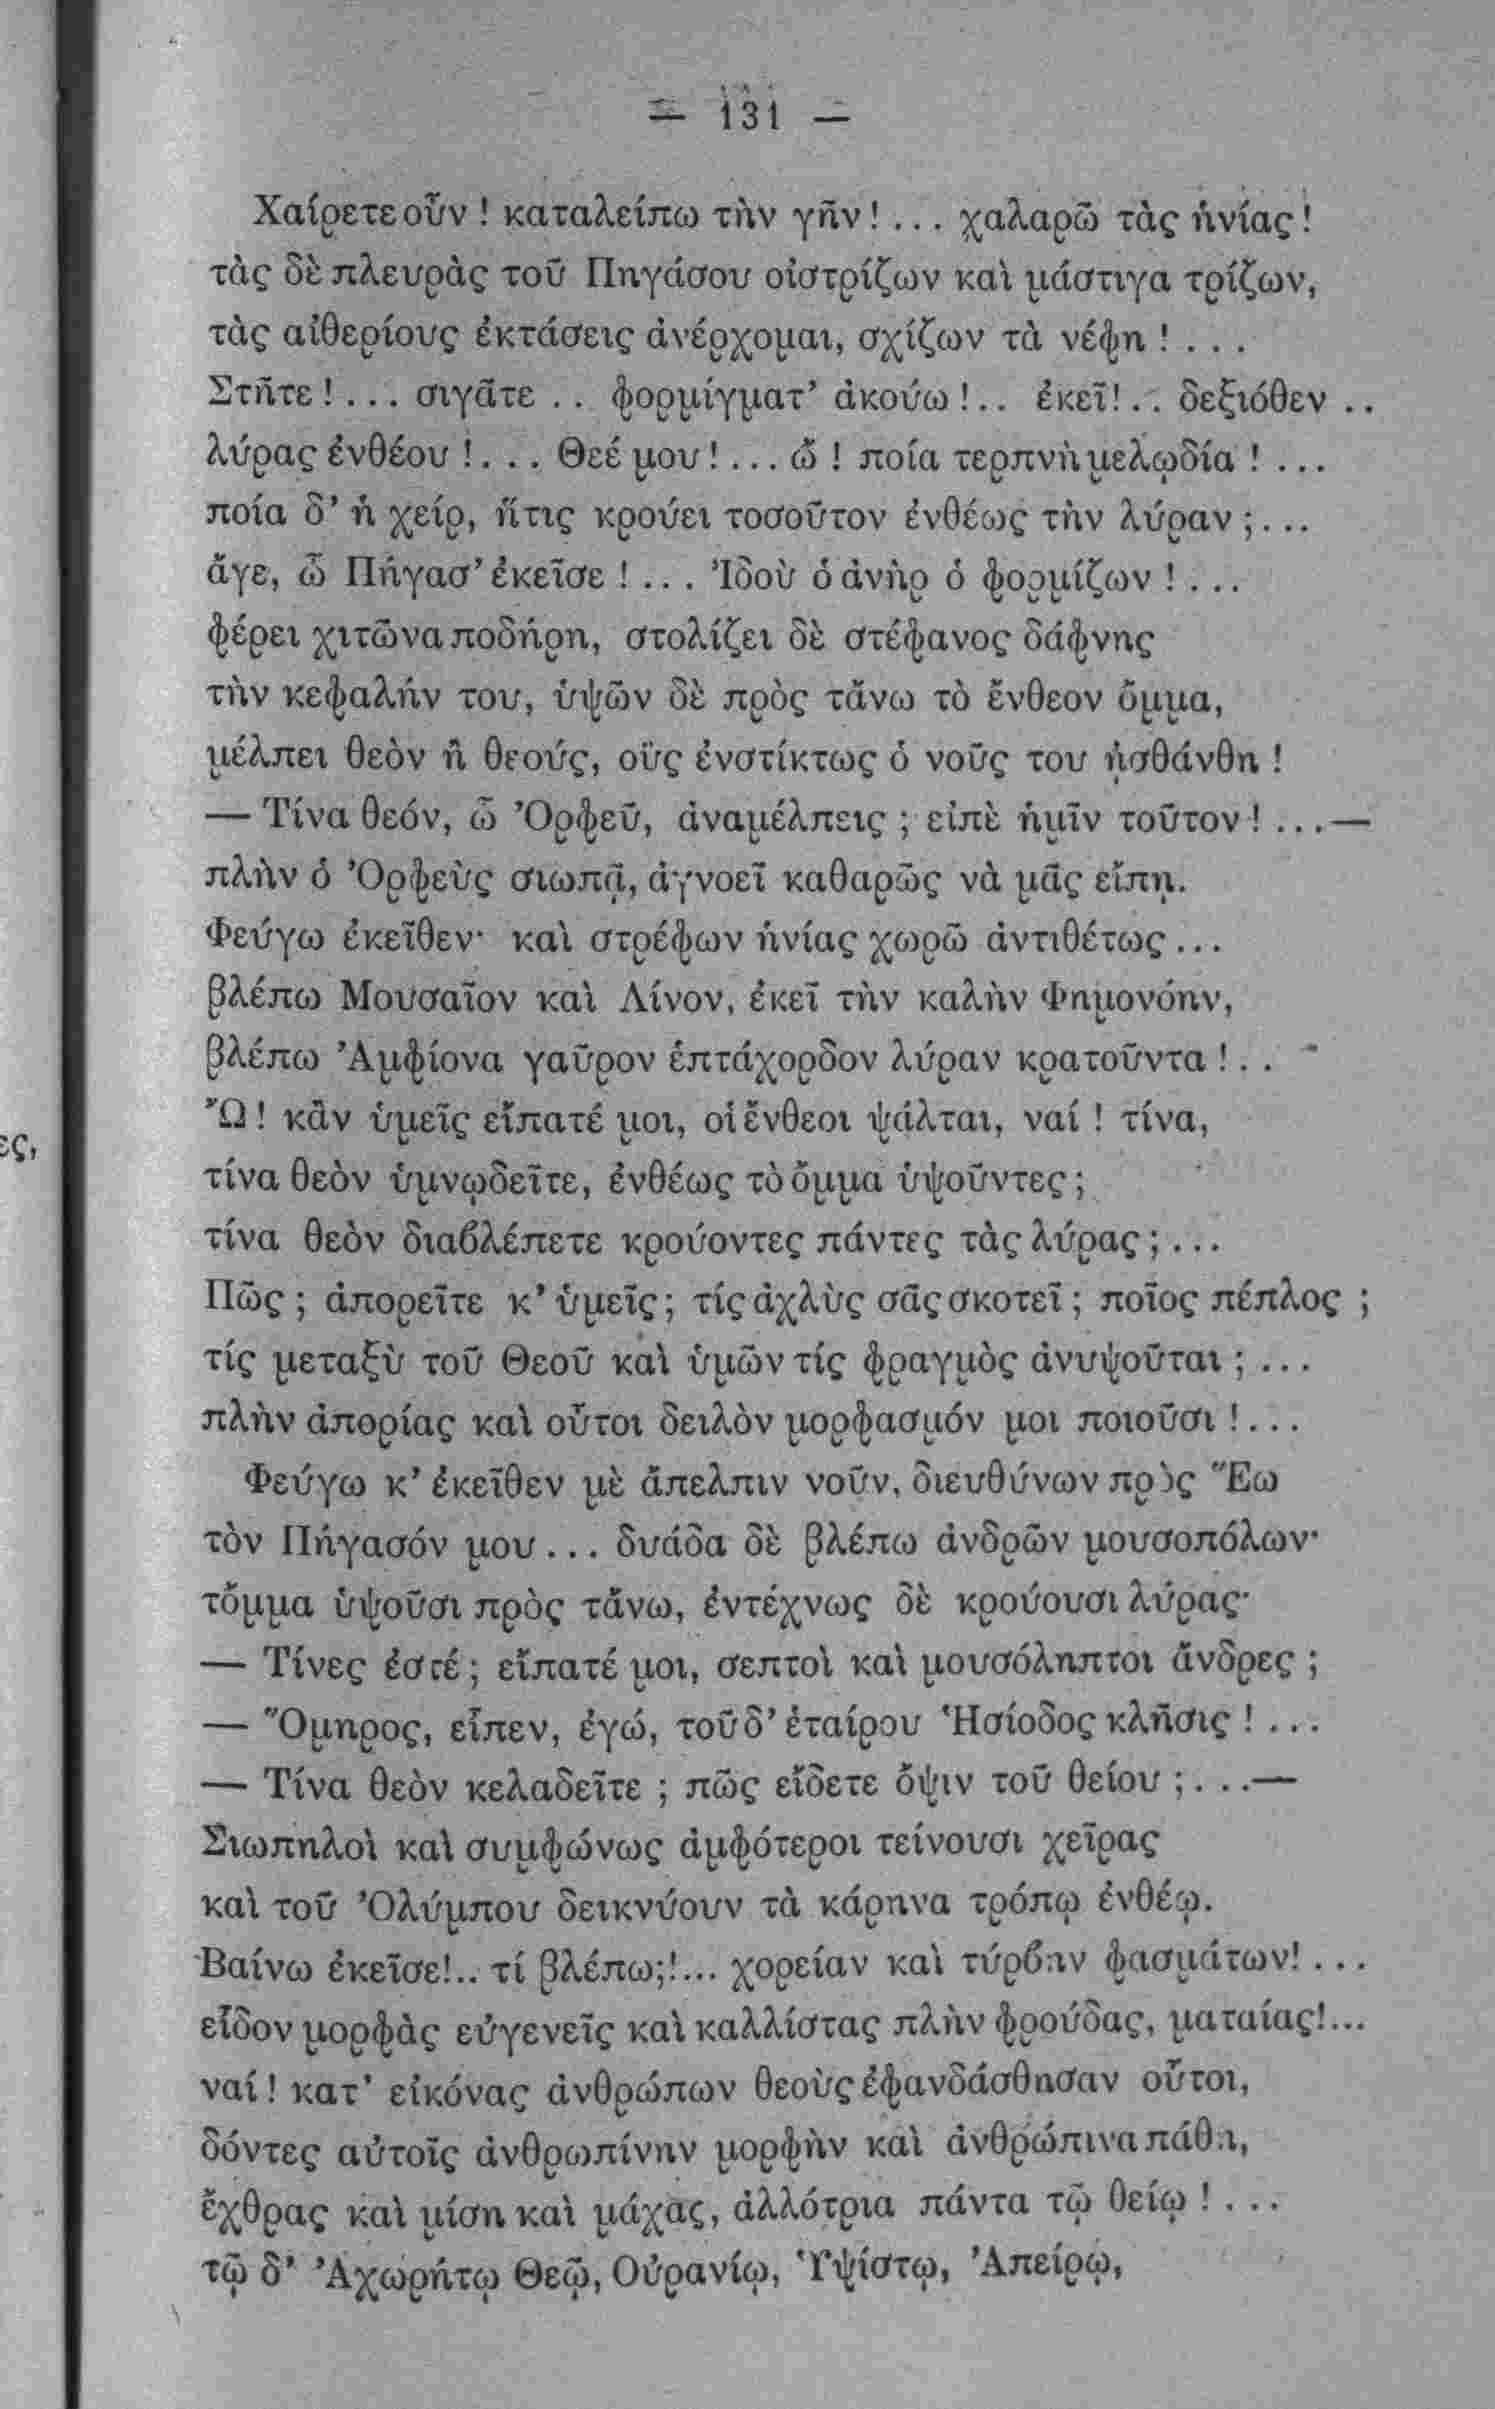 — 131 —
Χαίρετε οὖν ! καταλείπω τὴν γῆν ! ... χαλαρῶ τὰς ἡνίας !
τὰς δὲ πλευρὰς τοῦ Πηγάσου οἰστρίζων καὶ μάστιγα τρίζων,
τὰς αἰθερίους ἐκτάσεις ἀνέρχομαι, σχίζων τὰ νέφη ! ...
Στῆτε ! ... σιγᾶτε .. φορμίγματ' ἀκούω !.. ἐκεῖ!.. δεξιόθεν ..
λύρας ἐνθέου ! ... Θεέ μου ! ... ὤ ! ποία τερπνὴ μελῳδία ! ...
ποία δ' ἡ χείρ, ἥτις κρούει τοσοῦτον ἐνθέως τὴν λύραν ; ...
ἄγε, ὦ Πήγασ' ἐκεῖσε ! ... Ἰδοὺ ὁ ἀνὴρ ὁ φορμίζων ! ...
φέρει χιτῶνα ποδήρη, στολίζει δὲ στέφανος δάφνης
τὴν κεφαλήν του, ὑψῶν δὲ πρὸς τἄνω τὸ ἔνθεον ὄμμα,
μέλπει θεὸν ἢ θεούς, οὓς ἐνστίκτως ὁ νοῦς του ᾐσθάνθη !
— Τίνα θεόν, ὦ Ὀρφεῦ, ἀναμέλπεις ; εἰπὲ ἡμῖν τοῦτον ! ...—
πλὴν ὁ Ὀρφεὺς σιωπᾷ, ἀγνοεῖ καθαρῶς νὰ μᾶς εἴπῃ.
Φεύγω ἐκεῖθεν· καὶ στρέφων ἡνίας χωρῶ ἀντιθέτως ...
βλέπω Μουσαῖον καὶ Λίνον, ἐκεῖ τὴν καλὴν Φημονόην,
βλέπω Ἀμφίονα γαῦρον ἑπτάχορδον λύραν κρατοῦντα ! ..
Ὤ ! κἂν ὑμεῖς εἴπατέ μοι, οἱ ἔνθεοι ψάλται, ναί ! τίνα,
ες,
τίνα θεὸν ὑμνῳδεῖτε, ἐνθέως τὸ ὄμμα ὑψοῦντες ;
τίνα θεὸν διαβλέπετε κρούοντες πάντες τὰς λύρας ; ...
Πῶς ; ἀπορεῖτε κ' ὑμεῖς ; τίς ἀχλὺς σᾶς σκοτεῖ ; ποῖος πέπλος ;
τίς μεταξὺ τοῦ Θεοῦ καὶ ὑμῶν τίς φραγμὸς ἀνυψοῦται ; ...
πλὴν ἀπορίας καὶ οὗτοι δειλὸν μορφασμόν μοι ποιοῦσι ! ...
Φεύγω κ' ἐκεῖθεν μὲ ἄπελπιν νοῦν, διευθύνων πρὸς Ἕω
τὸν Πήγασόν μου ... δυάδα δὲ βλέπω ἀνδρῶν μουσοπόλων·
τὄμμα ὑψοῦσι πρὸς τἄνω, ἐντέχνως δὲ κρούουσι λύρας·
— Τίνες ἐστέ ; εἴπατέ μοι, σεπτοὶ καὶ μουσόληπτοι ἄνδρες ;
— Ὅμηρος, εἶπεν, ἐγώ, τοῦ δ' ἑταίρου Ἡσίοδος κλῆσις ! ...
— Τίνα θεὸν κελαδεῖτε ; πῶς εἴδετε ὄψιν τοῦ θείου ; ...—
Σιωπηλοὶ καὶ συμφώνως ἀμφότεροι τείνουσι χεῖρας
καὶ τοῦ Ὀλύμπου δεικνύουν τὰ κάρηνα τρόπῳ ἐνθέῳ.
Βαίνω ἐκεῖσε!.. τί βλέπω;!... χορείαν καὶ τύρβην φασμάτων! ...
εἶδον μορφὰς εὐγενεῖς καὶ καλλίστας πλὴν φρούδας, ματαίας!...
ναί ! κατ' εἰκόνας ἀνθρώπων θεοὺς ἐφανδάσθησαν οὗτοι,
δόντες αὐτοῖς ἀνθρωπίνην μορφὴν καὶ ἀνθρώπινα πάθη,
ἔχθρας καὶ μίση καὶ μάχας, ἀλλότρια πάντα τῷ θείῳ ! ...
τῷ δ' Ἀχωρήτῳ Θεῷ, Οὐρανίῳ, Ὑψίστῳ, Ἀπείρῳ,